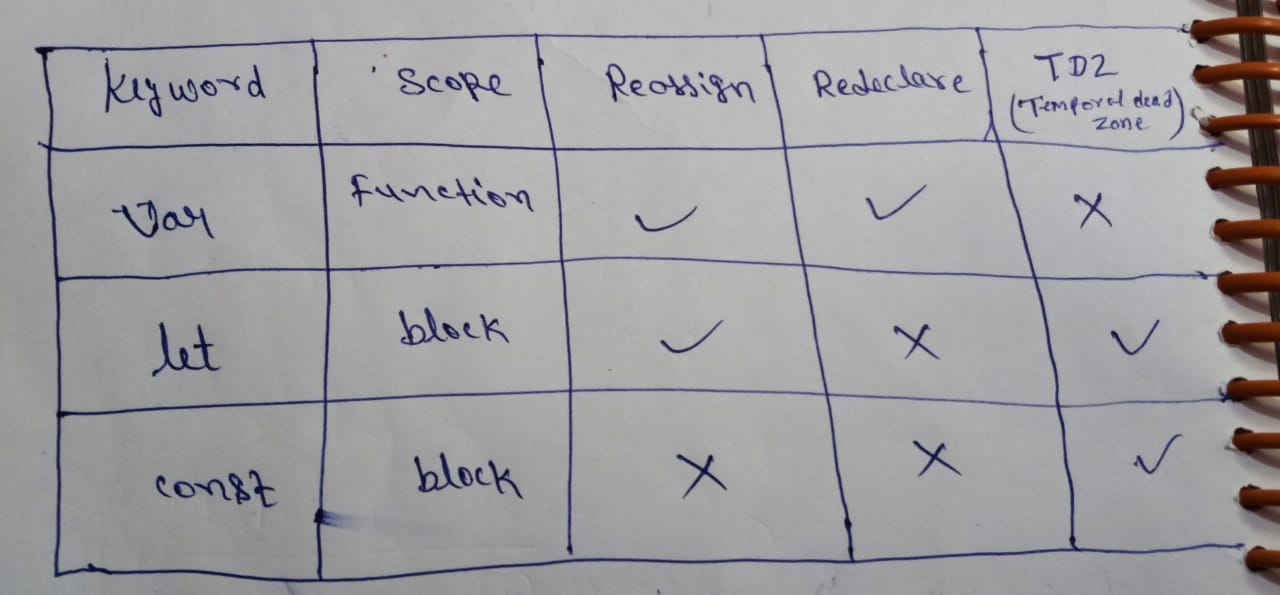 Keyword Scope Reassign Redeclare TDZ
(Temporal dead
zone)
Var Function ✓ ✓ X
let block ✓ X ✓
const block X X ✓